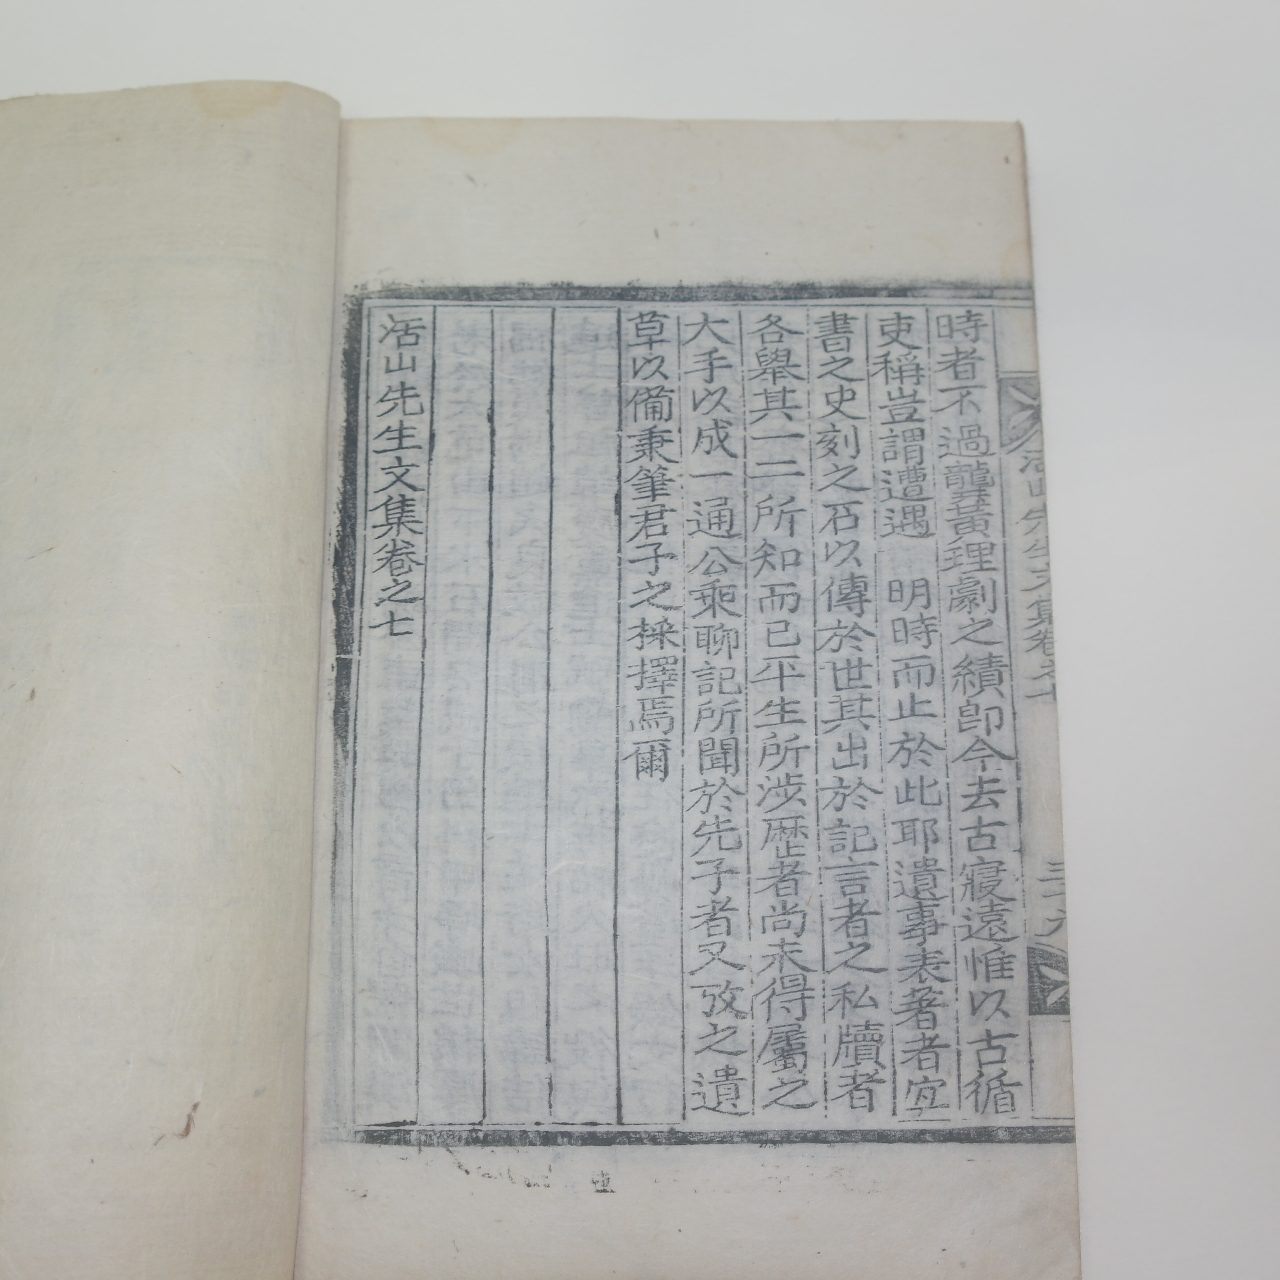 時者不過龔黃理劇之績卽今去古寢遠惟以古循
吏稱豈謂遭遇　明時而止於此耶遺事表著者宜
書之史刻之石以傳於世其出於記言者之私牘者
各擧其一二所知而已平生所涉歷者尚未得屬之
大手以成一通公乘聊記所聞於先子者又攷之遺
草以備秉筆君子之採擇焉爾
活山先生文集卷之七
活山先生文集卷之七
三十八